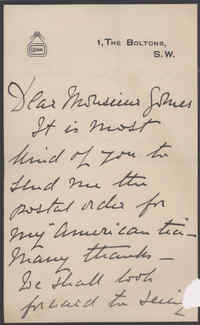 1, THE BOLTONS,
S.W.
Dear Monsieur
It is most
kind of you to
send me the
postal order for
my American
Many thanks –
We shall look
forward to seeing